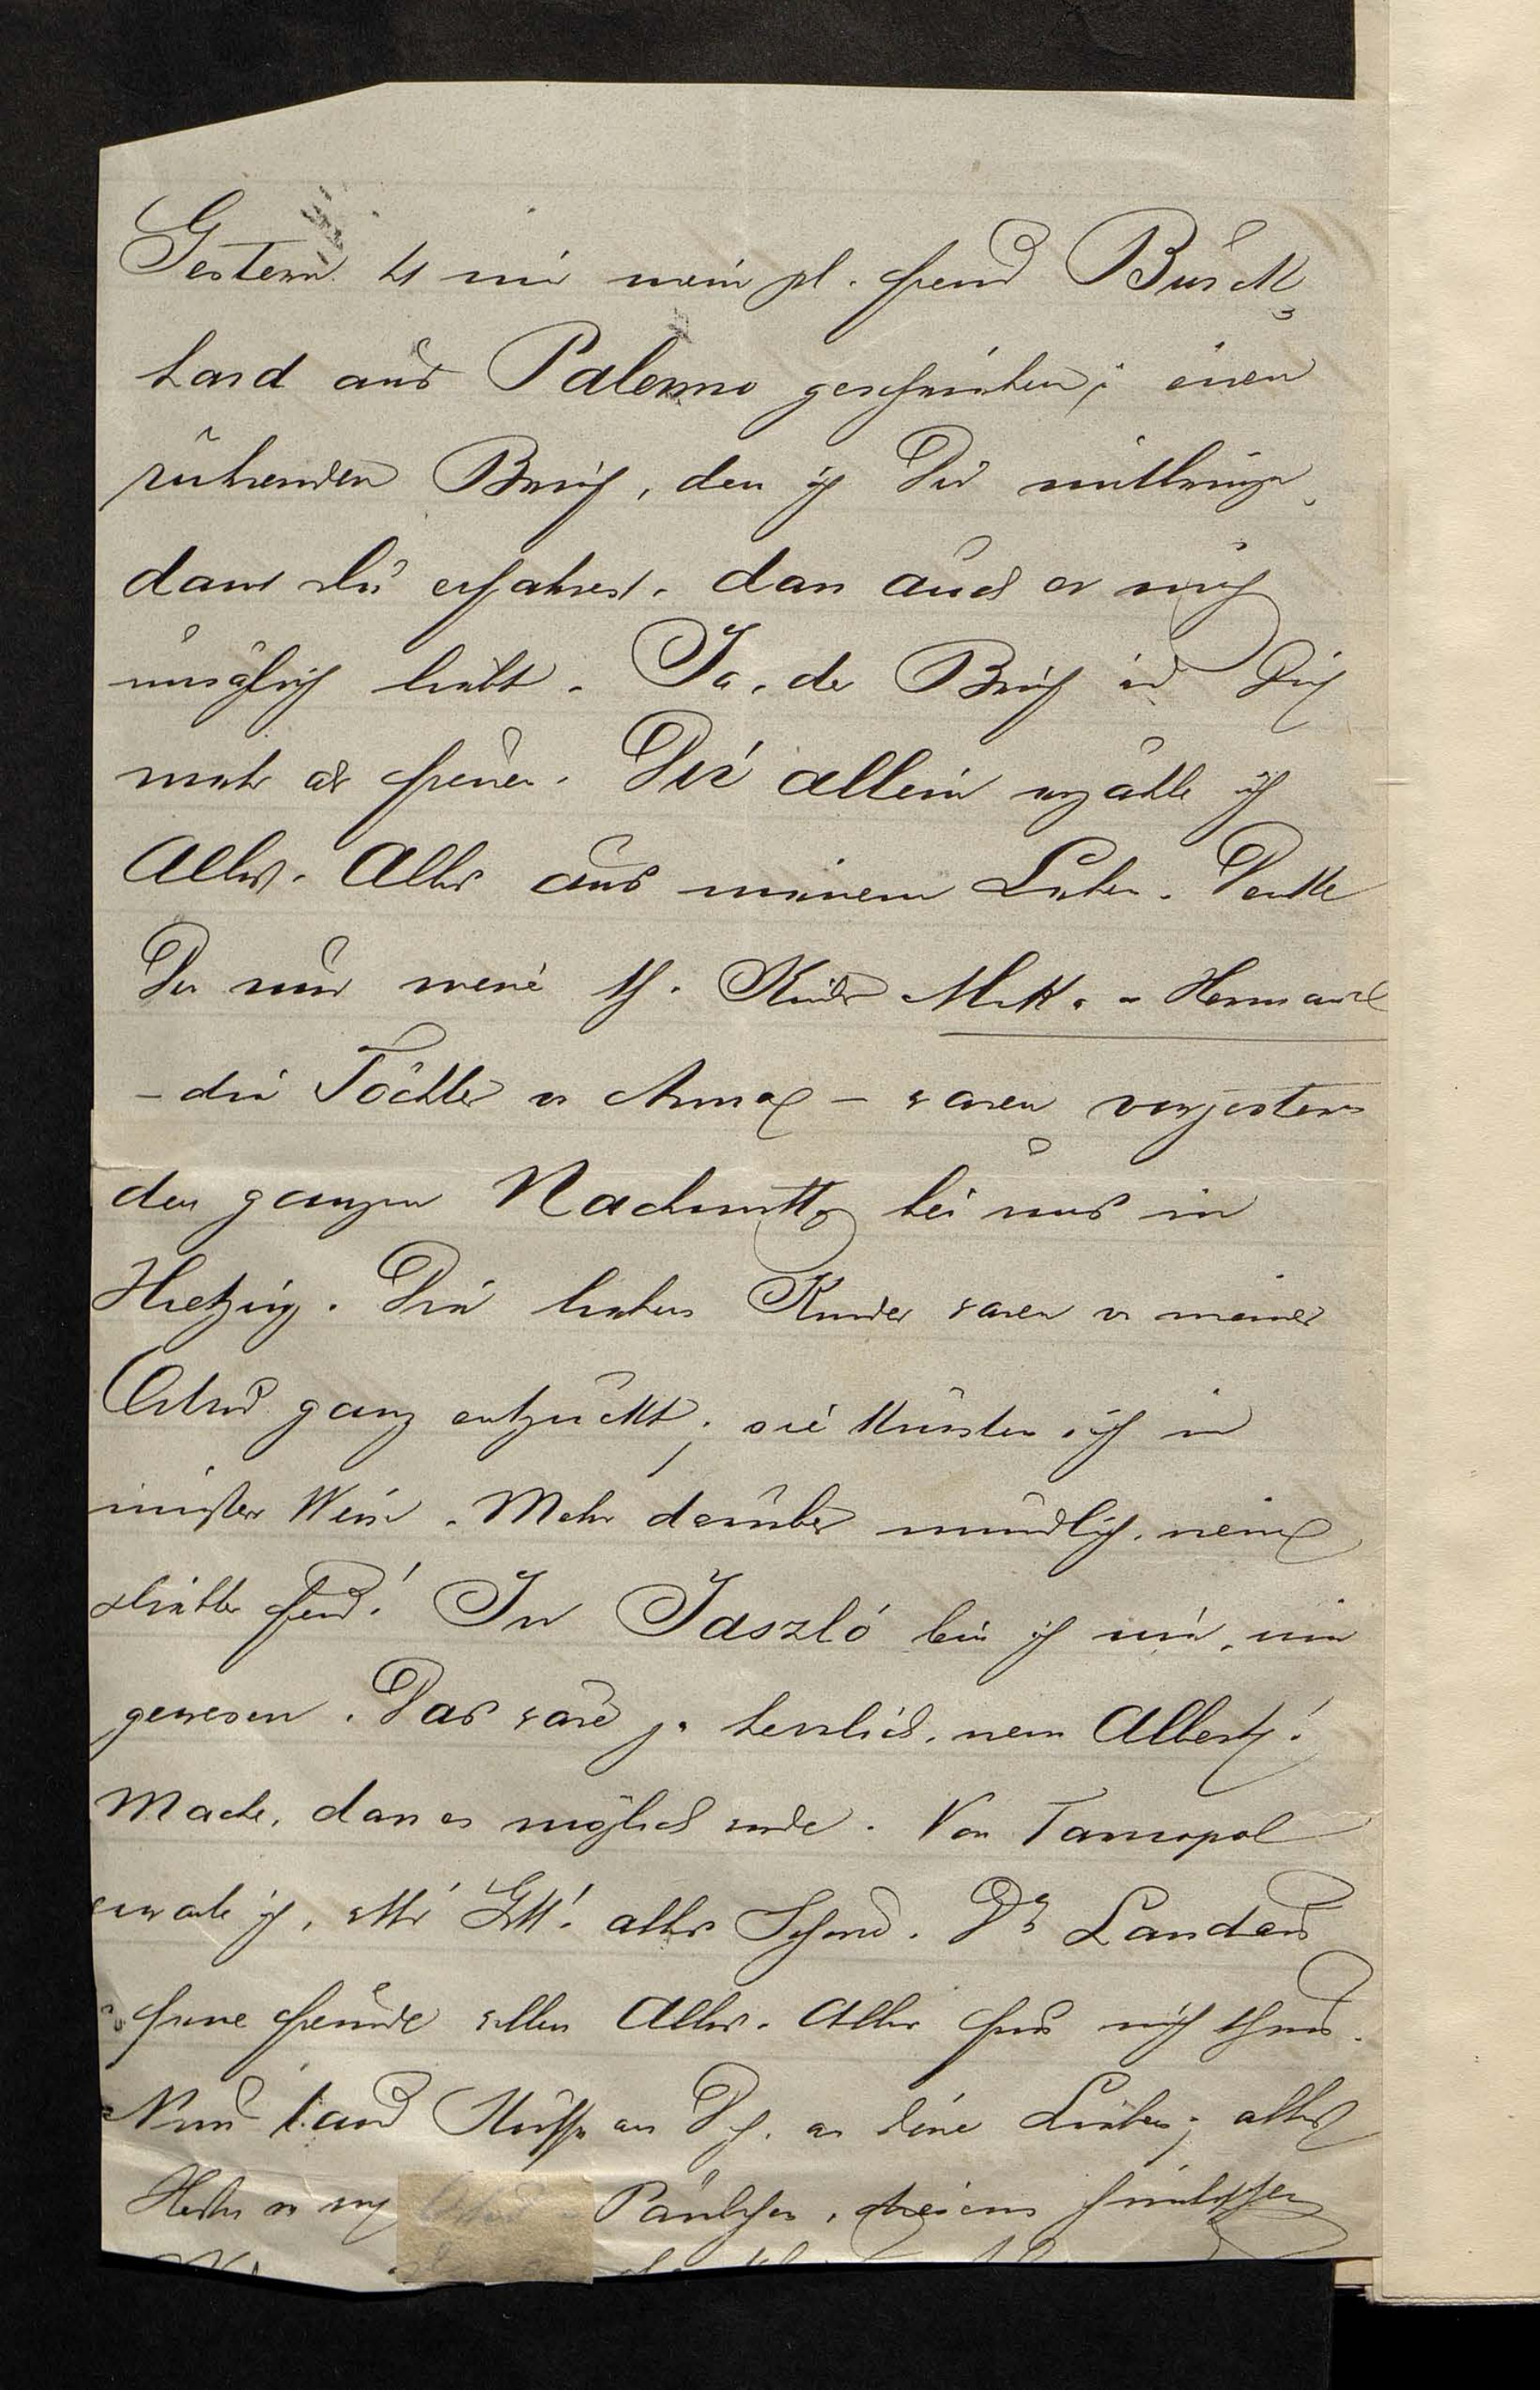 Gestern hat mir mein gel. Freund Burck-
hard aus Palermo geschrieben; einen
rührenden Brief, den ich Dir mitbringe,
damit Du erfahrest, dass auch er mich
unsäglich liebt. Ja, der Brief wird Dich
mehr als freuen. Dir allein erzähle ich
Alles, Alles aus meinem Leben. Denke
Dir nur, meine Kinder
– die Töchter v Anna – waren vorgestern
den ganzen Nachmittag bei uns in
Hietzing. Die lieben Kinder waren v meiner
ganz entzückt; sie küssten sich in
innigster Weise. Mehr darüber mündlich, mein
geliebter Freund! In Jaszló bin ich nie, nie
gewesen. Das wäre ja herrlich, mein Albert!
Mache, dass es möglich werde. Von Tarnopol
erwarte ich, will's Gott! alles Schöne. Dr Landau
seine Freunde wollen Alles, Alles für mich thun.
Nun tausend Küsse an Dich, an Deine Lieben; alles
Herzliche von Paulchen,